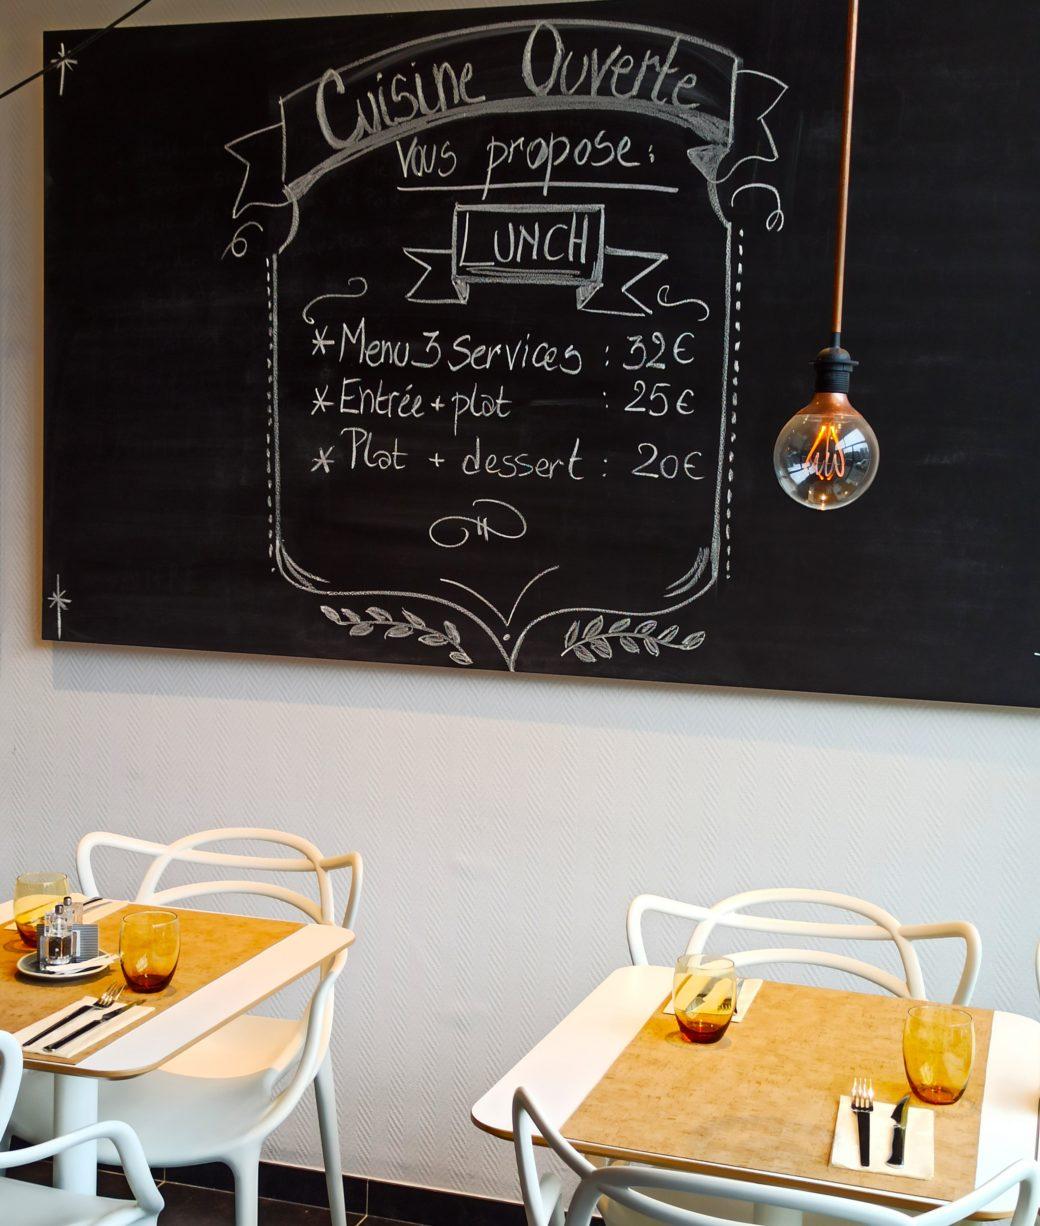 Cuisine Ouverte
Vous propose:
LUNCH
* Menu 3 services : 32€
* Entrée + plat : 25€
* Plat + dessert : 20€